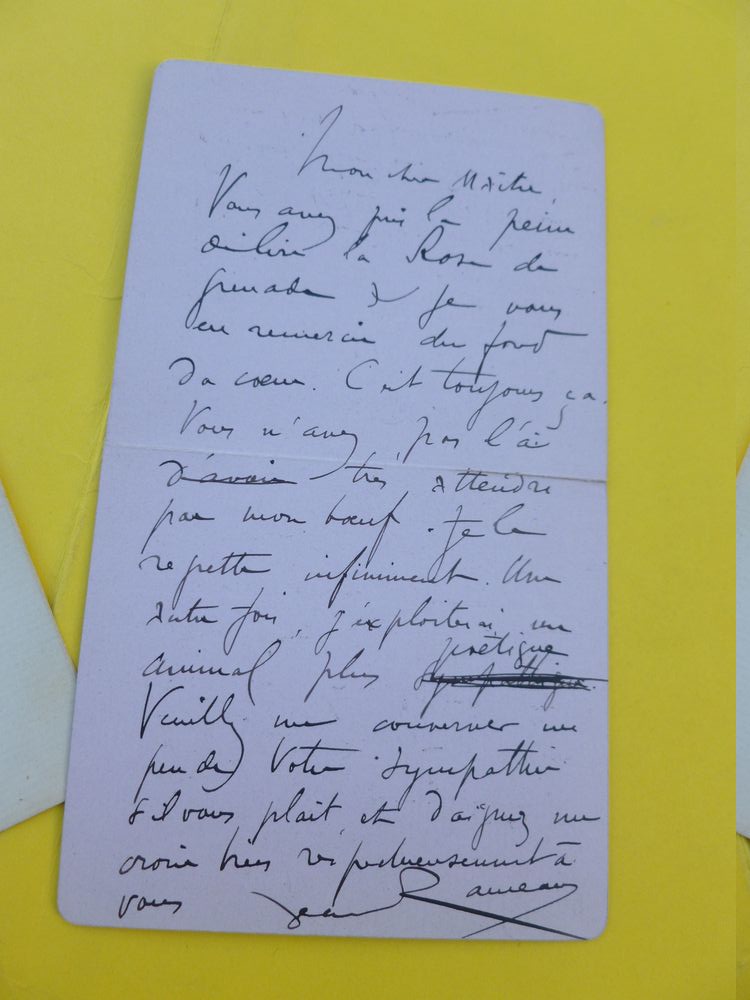 Mon cher Maître,
Vous avez pris la peine
de lire la Rose de
Grenade & je vous
en remercie du fond
du cœur. C'est toujours ça.
Vous n'avez pas l'air
d'avoir très attendri
par mon bœuf. Je le
regrette infiniment. Une
autre fois, j'exploiterai un
poétique
animal plus sympathique.
Veuillez me conserver un
peu de Votre sympathie
s'il vous plaît, et daignez me
croire bien respectueusement à
vous Jean Rameau